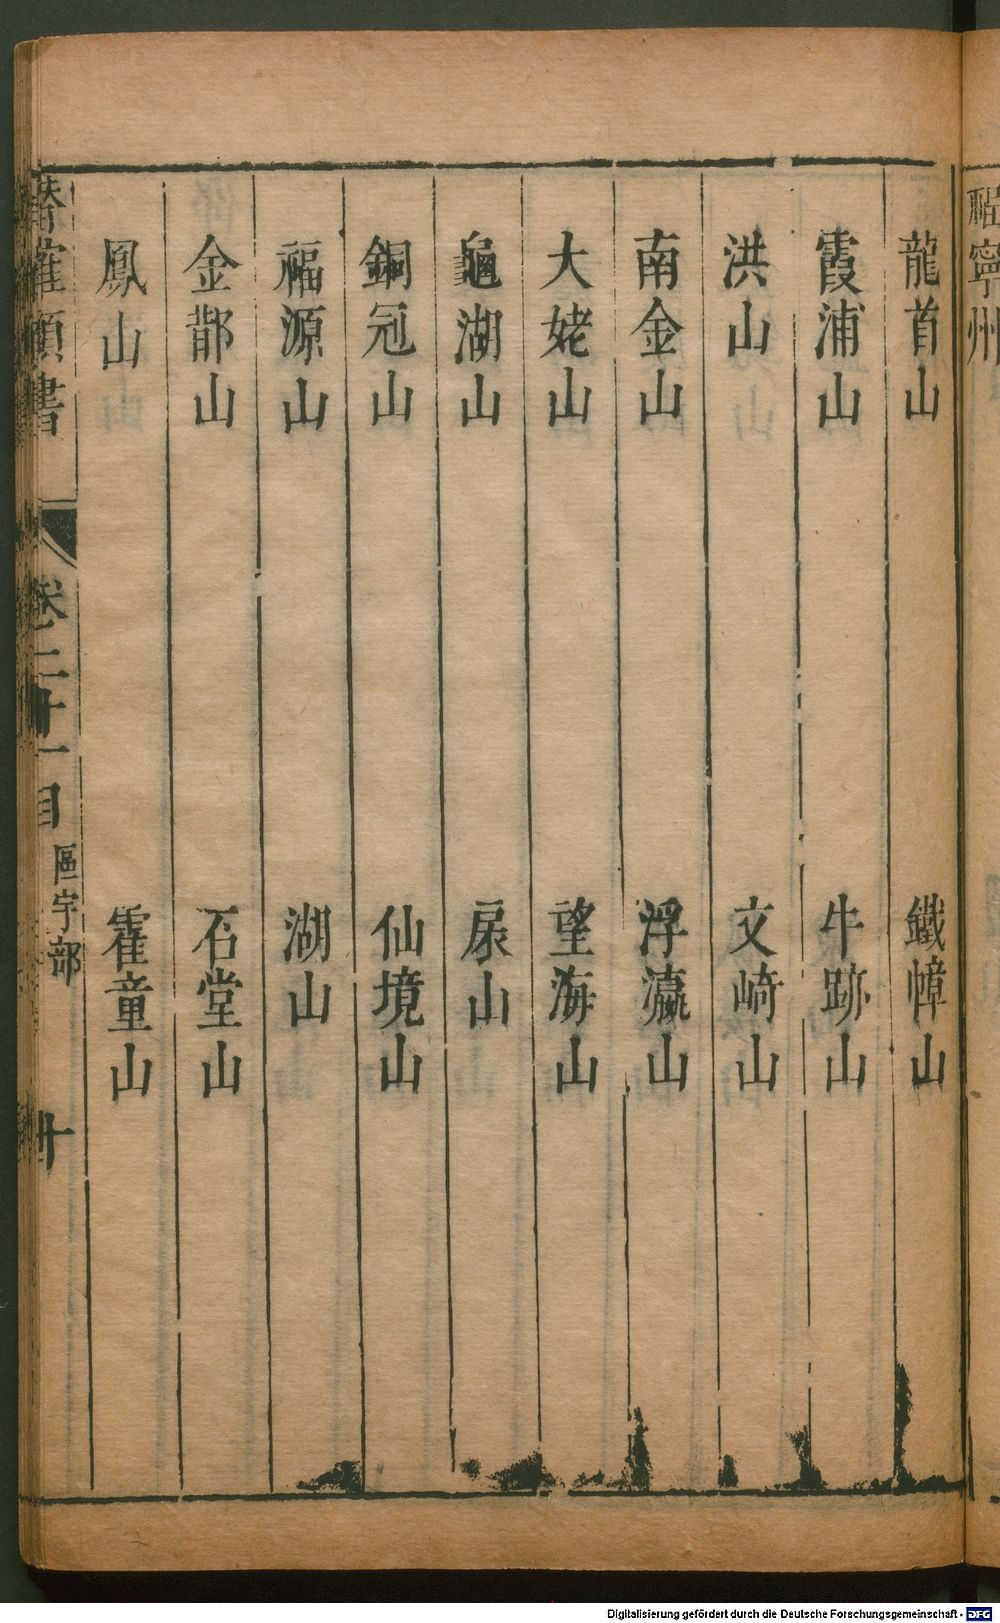 福寧州
龍首山 鐵幛山
霞浦山 牛跡山
洪山 文崎山
南金山 浮瀛山
大姥山 望海山
龜湖山 扆山
銅冠山 仙境山
福源山 湖山
金鄁山 石堂山
鳳山 霍童山
潛確類書 卷二十一目 區宇部 廿
Digitalisierung gefördert durch die Deutsche Forschungsgemeinschaft - DFG